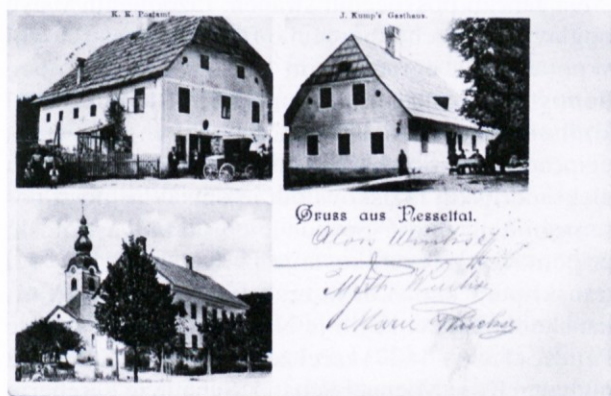 K. K. Postamt.
J. Kump's Gasthaus.
Gruss aus Nesseltal.
Alois
Math.
Marie